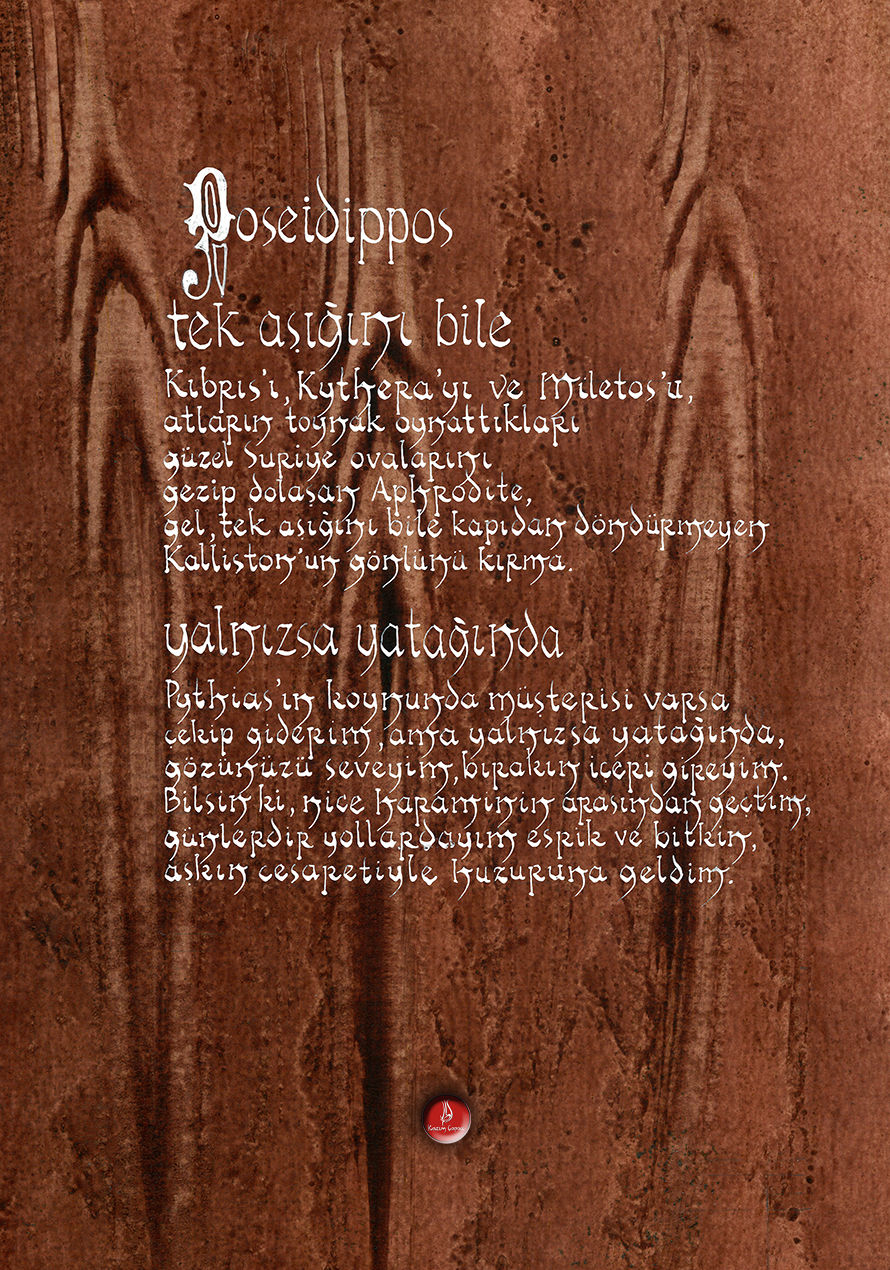 Poseidippos
tek aşığını bile
Kıbrıs'ı, Kythera'yı ve Miletos'u,
atların toynak oynattıkları
güzel Suriye ovalarını
gezip dolaşan Aphrodite,
gel, tek aşığını bile kapıdan döndürmeyen
Kalliston'un gönlünü kırma.
yalnızsa yatağında
Pythias'ın koynunda müşterisi varsa
çekip giderim, ama yalnızsa yatağında,
gözünüzü seveyim, bırakın içeri gireyim.
Bilsin ki, nice haraminin arasından geçtim,
günlerdir yollardayım esrik ve bitkin,
aşkın cesaretiyle huzuruna geldim.